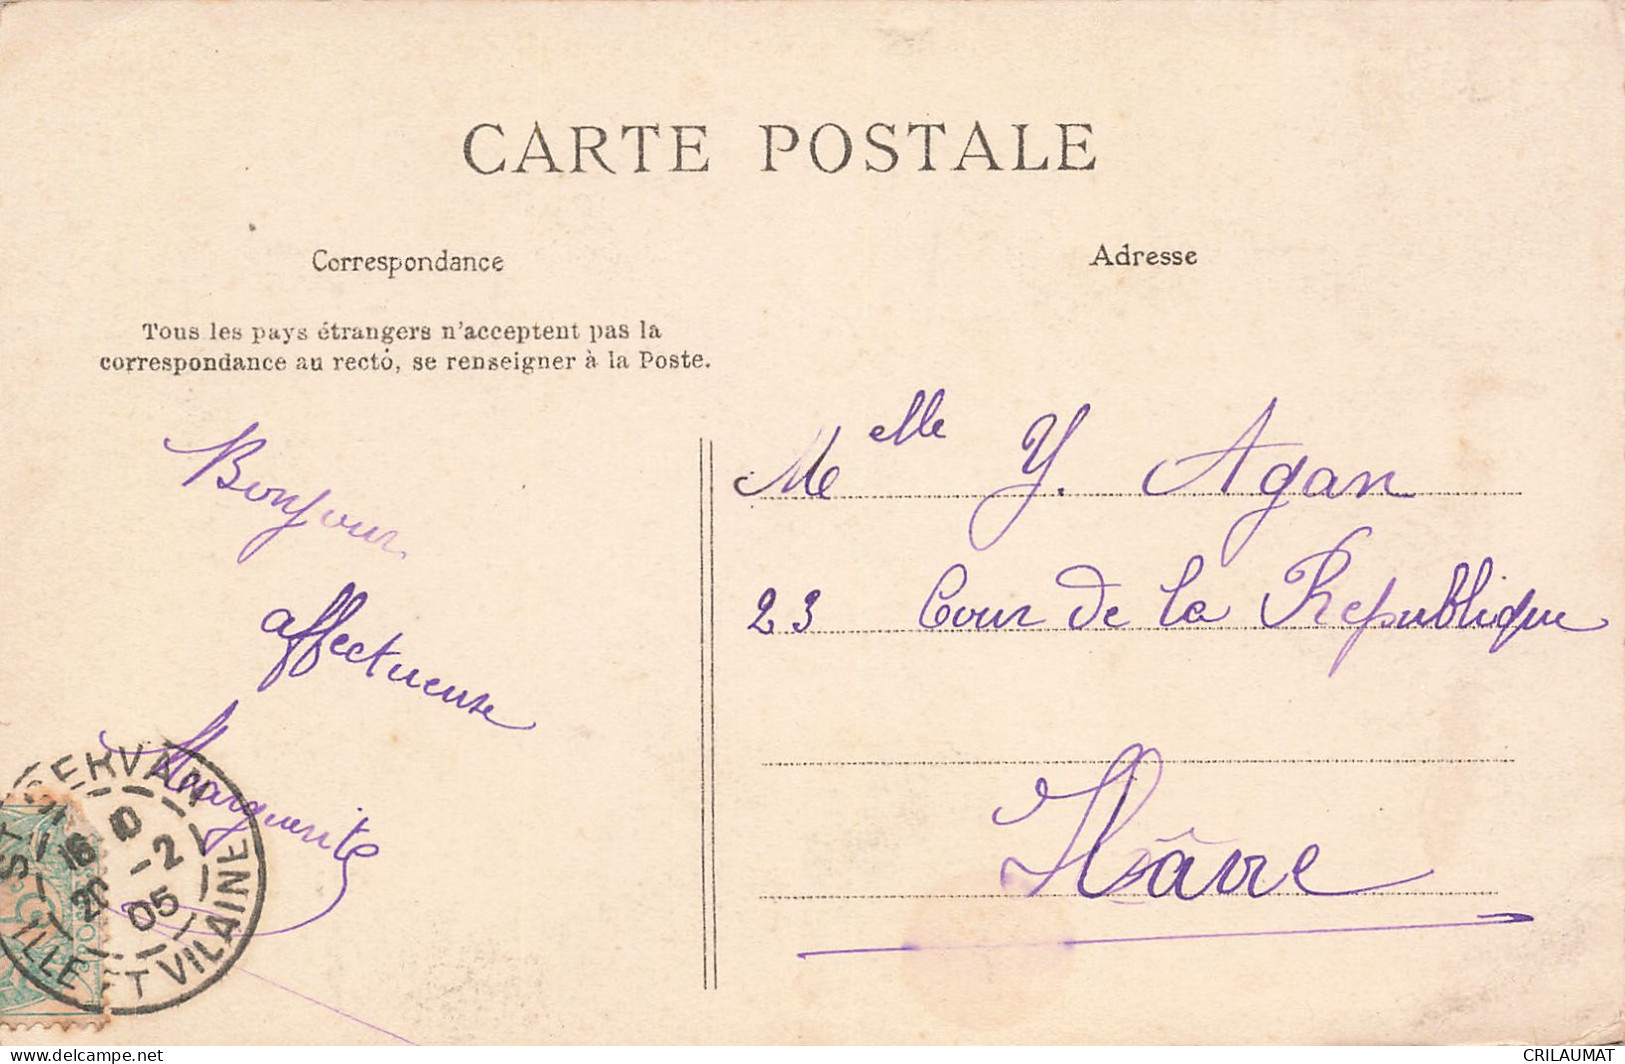 CARTE POSTALE
Correspondance
Tous les pays étrangers n'acceptent pas la
correspondance au recto, se renseigner à la Poste.
Bonjour
affectueuse
Marguerite
Adresse
Melle Y. Agan
23 Cour de la République
Hâvre
ST SERVAN
16
26 -2
05
ILLE ET VILAINE
5c
www.delcampe.net
CRILAUMAT